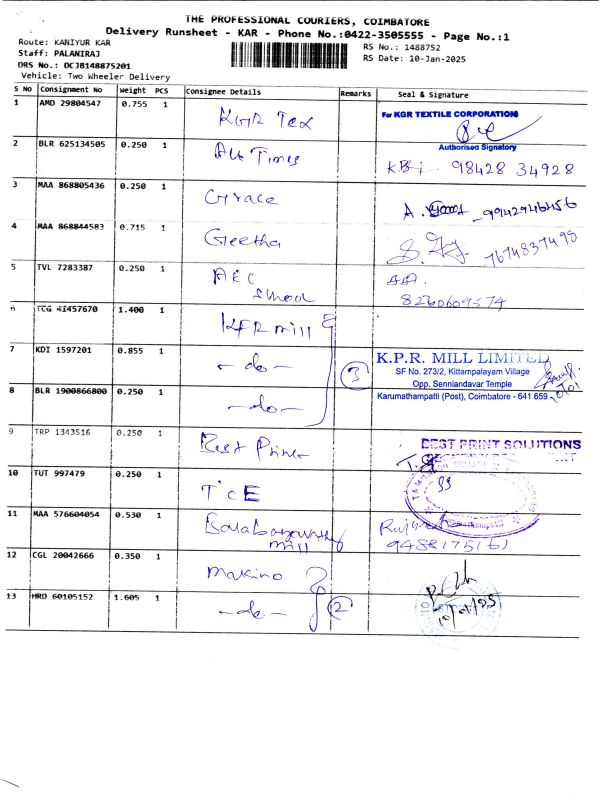 THE PROFESSIONAL COURIERS, COIMBATORE
Delivery Runsheet - KAR - Phone No.:0422-3505555 - Page No.:1
Route: KANIYUR KAR
RS No.: 1488752
Staff: PALANIRAJ
RS Date: 10-Jan-2025
DRS No.: DCJB148875201
Vehicle: Two Wheeler Delivery
S No Consignment No Weight PCS Consignee Details Remarks Seal & Signature
1 AMD 29804547 0.755 1 KGR Tex For KGR TEXTILE CORPORATION
Authorised Signatory
2 BLR 625134505 0.250 1 Times 98428 34928
3 MAA 868805436 0.250 1 Grace A. 9942946456
4 MAA 868844583 0.715 1 Geetha 7674837498
5 TVL 7283387 0.250 1 ARC School
8260609574
6 TCG 41457670 1.400 1 KPR mill
7 KDI 1597201 0.855 1 -do- 3 K.P.R. MILL LIMITED
SF No. 273/2, Kittampalayam Village
Opp. Senniandavar Temple
8 BLR 1900866800 0.250 1 -do- Karumathampatti (Post), Coimbatore - 641 659
9 TRP 1343516 0.250 1 Best Print BEST PRINT SOLUTIONS
10 TUT 997479 0.250 1 TCE
11 MAA 576604054 0.530 1 mill
12 CGL 20042666 0.350 1 Makino
13 HRD 60105152 1.605 1 -do- 2